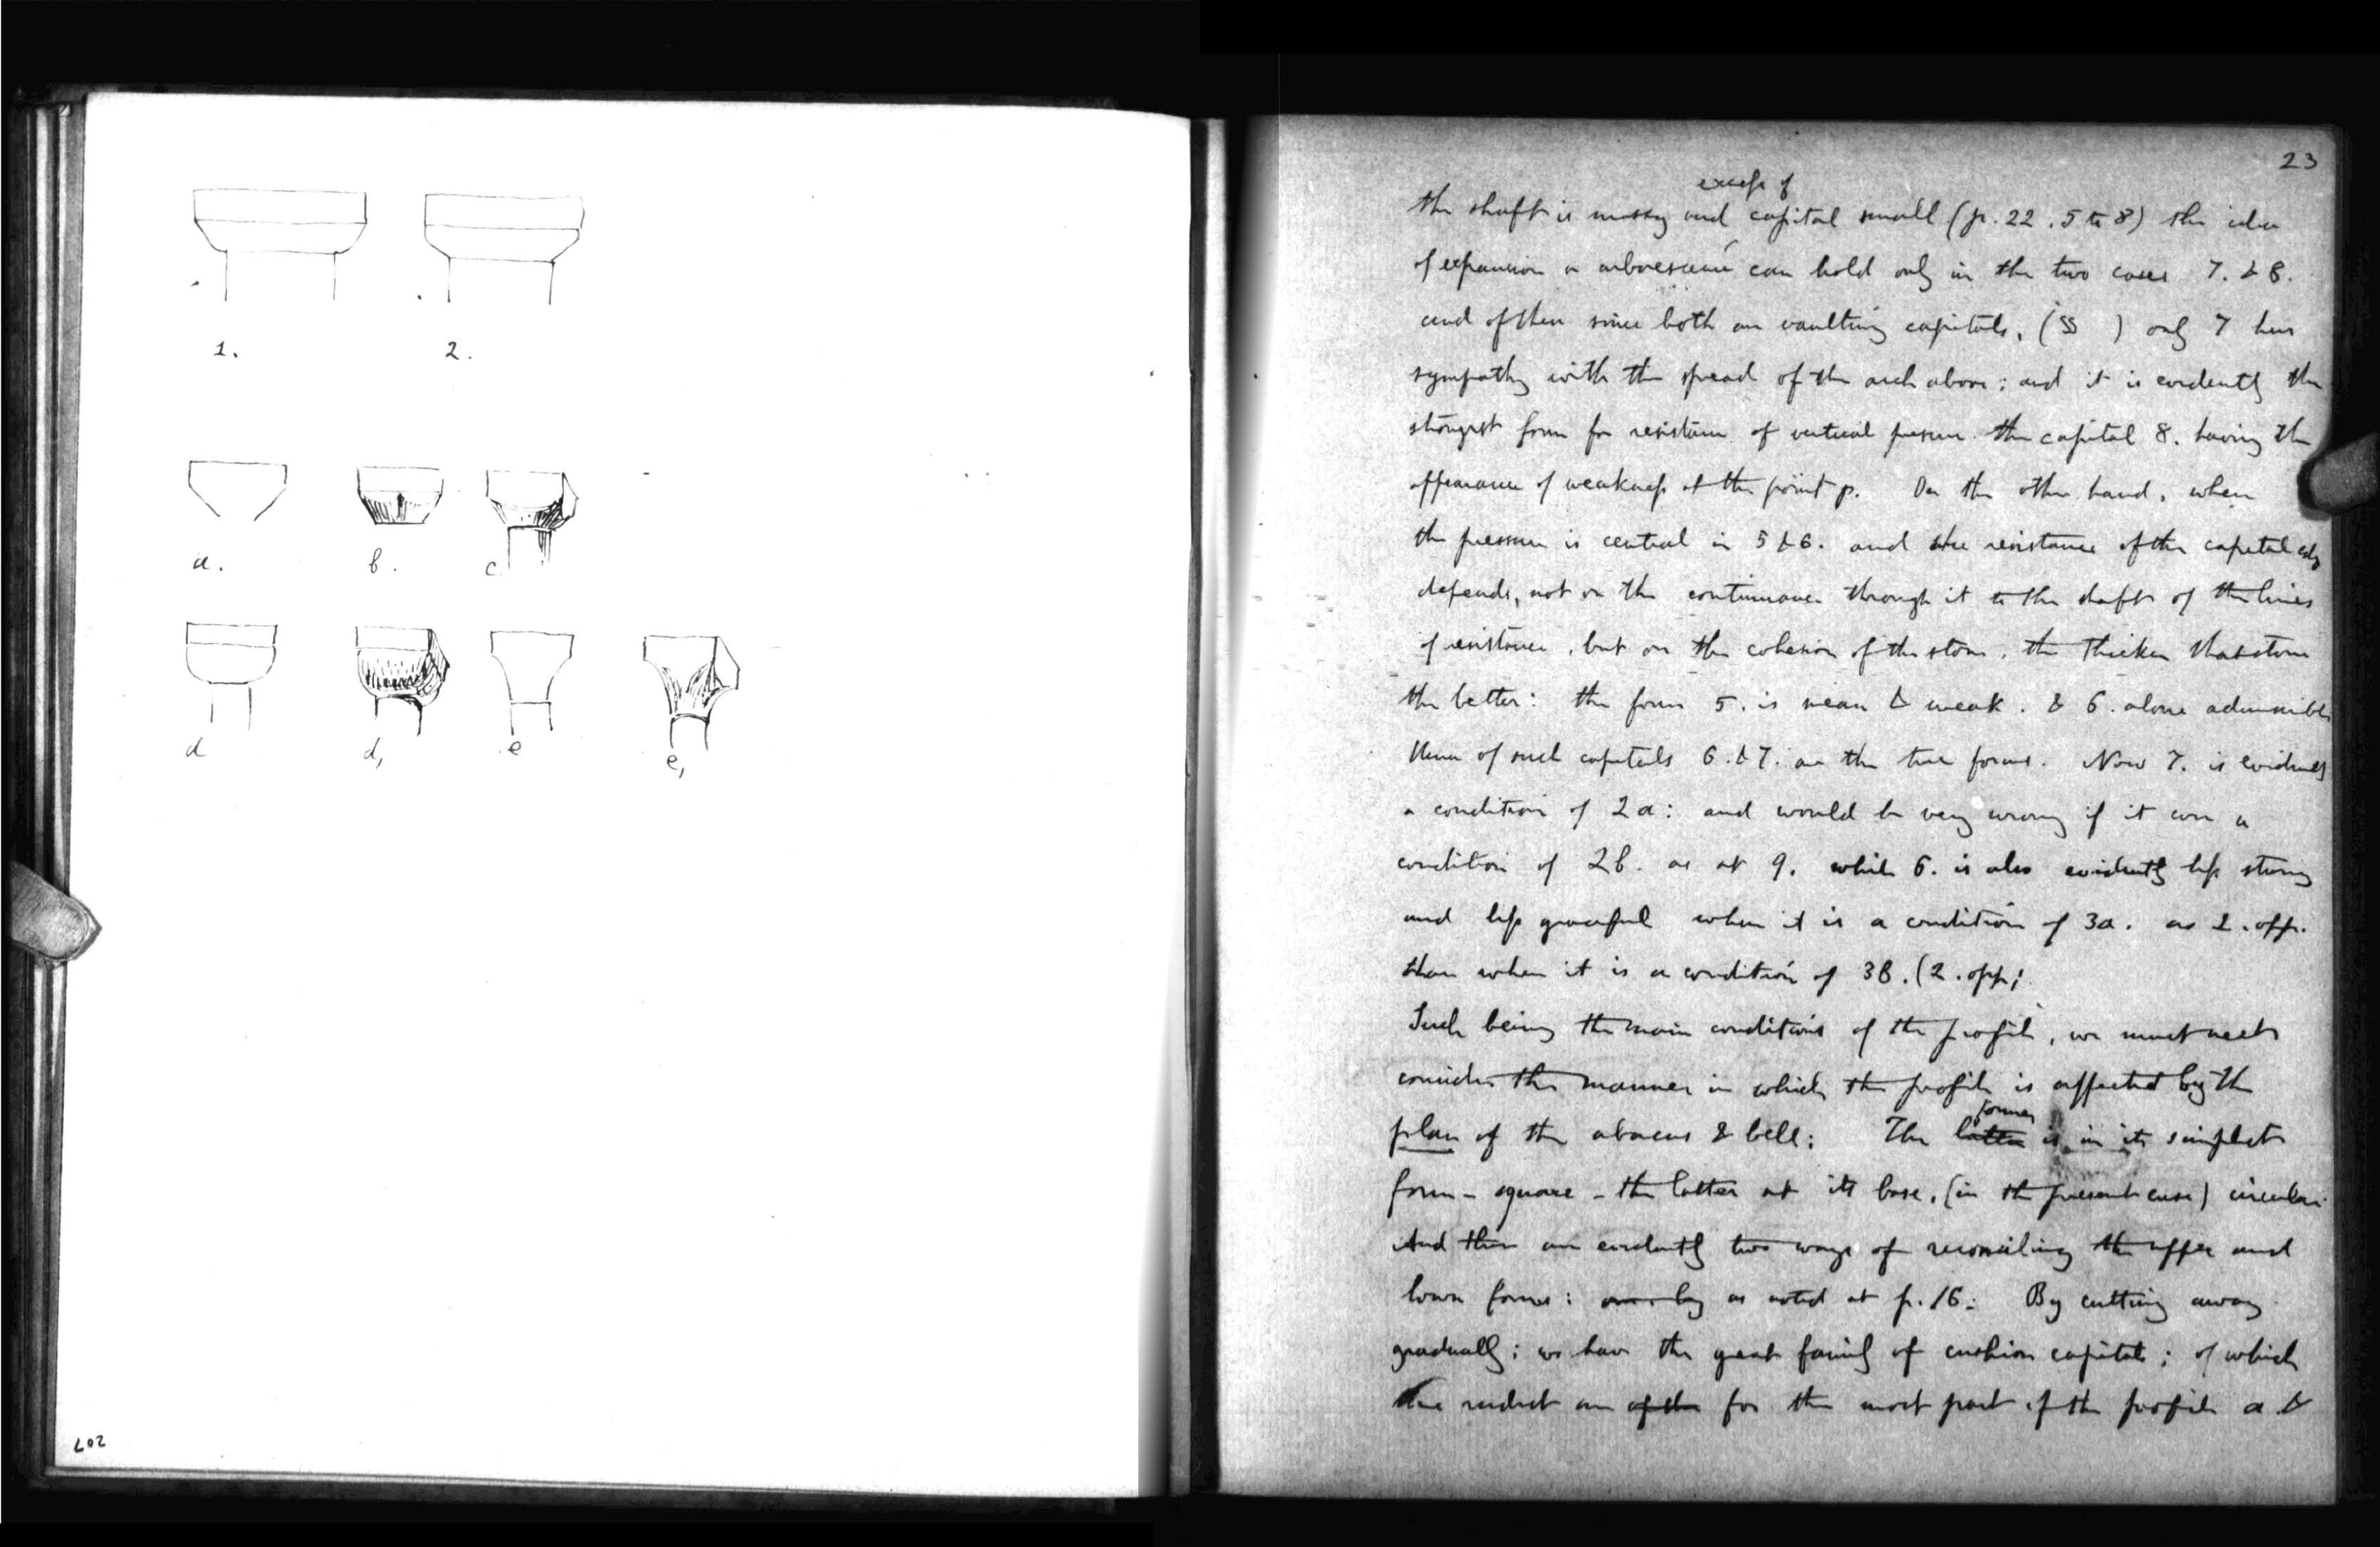 1.
2.
a.
b.
c
d
d,
e
e,
207
23
excess of
the shaft is massy and capital small (p. 22. 5 to 8) the idea
of expansion or arborescence can hold only in the two cases 7. & 8.
and of these since both are vaulting capitals, (§§ ) only 7 has
sympathy with the spread of the arch above; and it is evidently the
strongest form for resistance of vertical pressure. the capital 8. having the
appearance of weakness at the point p. On the other hand, when
the pressure is central in 5 & 6. and the resistance of the capital only
depends, not on the continuance through it to the shaft of the lines
of resistance, but on the cohesion of the stone, the thicker that stone
the better: the form 5. is mean & weak. & 6. alone admissible
Hence of such capitals 6. & 7. are the true forms. Now 7. is evidently
a condition of 2a: and would be very wrong if it were a
condition of 2b. as at 9. while 6. is also evidently less strong
and less graceful when it is a condition of 3a. as 1. opp.
than when it is a condition of 3b. (2. opp;
Such being the main conditions of the profile, we must next
consider the manner in which the profile is affected by the
former
plan of the abacus & bell: The latter is in its simplest
form - square - the latter at its base, (in the present case) circular.
And there are evidently two ways of reconciling the upper and
lower forms: by as noted at p. 16: By cutting away
gradually; we have the great family of cushion capitals; of which
the rudest are of the for the most part of the profile a &